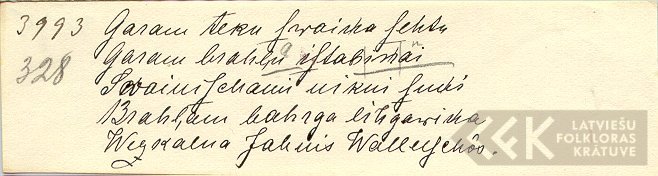 3993 Garam teku swaina sehtu
328 Garam brahļu istabinai
Swainischami nikni suņi
Brahļam bahrga lihgawina
Wezkalna Jahnis Walleschôs.
LATVIEŠU
FOLKLORAS
KRĀTUVE